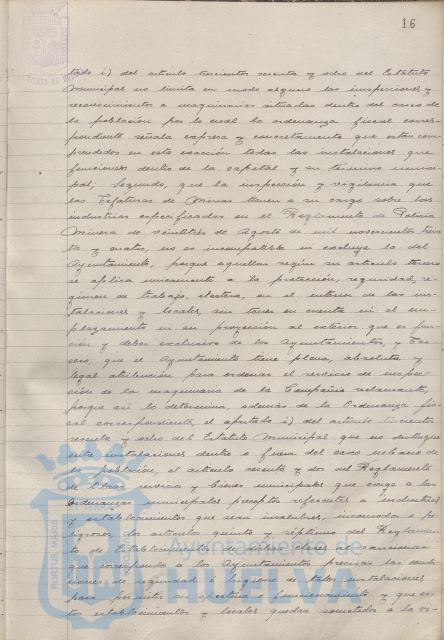 16
tado i) del artículo trescientos sesenta y ocho del Estatuto
Municipal no limita en modo alguno las inspecciones y
reconocimientos a maquinarias situadas dentro del casco de
la población por lo cual la ordenanza fiscal corres-
pondiente señala expresa y concretamente que están com-
prendidos en esta exacción todas las instalaciones que
funcionen dentro de la capital y su término munici-
pal; Segundo, que la inspección y vigilancia que
las Jefaturas de Minas tienen a su cargo sobre las
industrias especificadas en el Reglamento de Policía
Minera de veintitrés de Agosto de mil novecientos trein-
ta y cuatro, no es incompatible ni excluye la del
Ayuntamiento, porque aquellas según su artículo tercero
se aplica unicamente a la protección, seguridad, re-
gimen de trabajo, etcetera, en el interior de las ins-
talaciones y locales, sin tener en cuenta ni el em-
plazamiento ni su proyección al exterior que es fun-
ción y deber exclusivo de los Ayuntamientos, y Ter-
cero, que el Ayuntamiento tiene plena, absoluta y
legal atribución para ordenar el servicio de inspec-
ción de la maquinaria de la Compañía reclamante,
porque así lo determina, además de la Ordenanza fis-
cal correspondiente, el apartado i) del artículo trescientos
sesenta y ocho del Estatuto Municipal que no distingue
entre instalaciones dentro o fuera del casco urbano de
la población, el artículo sesenta y dos del Reglamento
de Obras, servicios y bienes municipales que exige a las
Ordenanzas municipales preceptos referentes a industrias
y establecimientos que sean insalubres, incomodos o pe-
ligrosos, los artículos quinto y séptimo del Reglamen-
to de Establecimientos de
que corresponde a los Ayuntamientos precisar las condi-
ciones de seguridad e higiene de tales instalaciones
para permitir su apertura y funcionamiento y que es-
tos establecimientos y locales quedan sometidos a la vi-
PORTUS MARIS
TERRAE
Ayuntamiento de
HUELVA